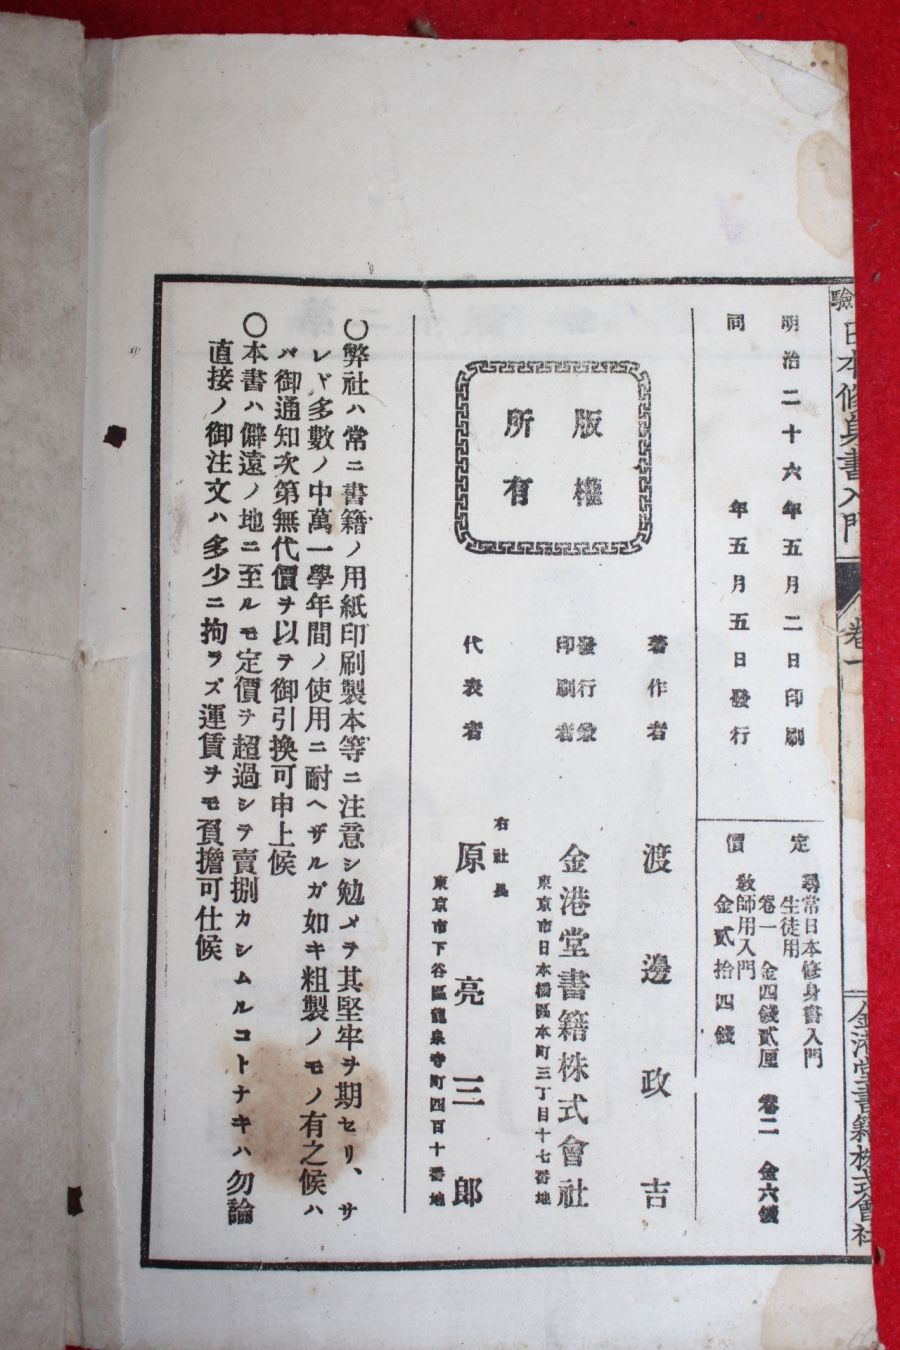 驗日本修身書入門
卷一
金港堂書籍株式會社
明治二十六年五月二日印刷
同年五月五日發行
定價
尋常日本修身書入門
生徒用
卷一 金四錢貳厘 卷二 金六錢
教師用入門
金貳拾四錢
版權
所有
著作者 渡邊政吉
發行兼
印刷者 金港堂書籍株式會社
東京市日本橋區本町三丁目十七番地
右社長
代表者 原亮三郎
東京市下谷區龍泉寺町四百十番地
〇弊社ハ常ニ書籍ノ用紙印刷製本等ニ注意シ勉メテ其堅牢ヲ期セリ、サ
レド多數ノ中萬一學年間ノ使用ニ耐ヘザルガ如キ粗製ノモノ有之候ハ
バ御通知次第無代價ヲ以テ御引換可申上候
〇本書ハ僻遠ノ地ニ至ルモ定價ヲ超過シテ賣捌カシムルコトナキハ勿論
直接ノ御注文ハ多少ニ拘ラズ運賃ヲモ負擔可仕候